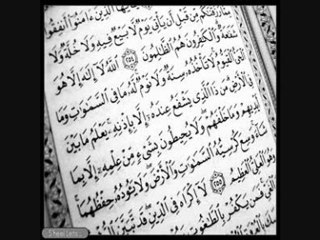 ٱلَّذِينَ ءَامَنُوٓا۟ أَنفِقُوا۟
مِمَّا رَزَقْنَٰكُم مِّن قَبْلِ أَن يَأْتِىَ يَوْمٌ لَّا بَيْعٌ فِيهِ وَلَا خُلَّةٌ وَلَا
شَفَٰعَةٌ وَٱلْكَٰفِرُونَ هُمُ ٱلظَّٰلِمُونَ ٢٥٤ ٱللَّهُ لَآ إِلَٰهَ إِلَّا هُوَ
ٱلْحَىُّ ٱلْقَيُّومُ لَا تَأْخُذُهُۥ سِنَةٌ وَلَا نَوْمٌ لَّهُۥ مَا فِى ٱلسَّمَٰوَٰتِ وَمَا
فِى ٱلْأَرْضِ مَن ذَا ٱلَّذِى يَشْفَعُ عِندَهُۥٓ إِلَّا بِإِذْنِهِۦ يَعْلَمُ مَا بَيْنَ
أَيْدِيهِمْ وَمَا خَلْفَهُمْ وَلَا يُحِيطُونَ بِشَىْءٍ مِّنْ عِلْمِهِۦٓ إِلَّا بِمَا
شَآءَ وَسِعَ كُرْسِيُّهُ ٱلسَّمَٰوَٰتِ وَٱلْأَرْضَ وَلَا يَـُٔودُهُۥ حِفْظُهُمَا
وَهُوَ ٱلْعَلِىُّ ٱلْعَظِيمُ ٢٥٥ لَآ إِكْرَاهَ فِى ٱلدِّينِ قَد تَّبَيَّنَ ٱلرُّشْدُ
ٱلْغَىِّ فَمَن يَكْفُرْ بِٱلطَّٰغُوتِ